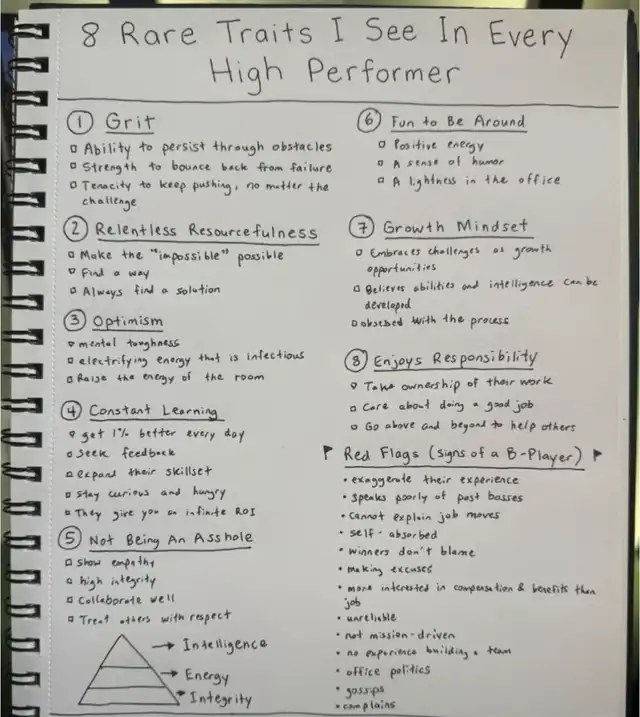 8 Rare Traits I See In Every
High Performer
① Grit
Ability to persist through obstacles
Strength to bounce back from failure
Tenacity to keep pushing, no matter the
challenge
② Relentless Resourcefulness
Make the "impossible" possible
Find a way
Always find a solution
③ Optimism
mental toughness
electrifying energy that is infectious
Raise the energy of the room
④ Constant Learning
get 1% better every day
Seek feedback
expand their skillset
stay curious and hungry
They give you an infinite ROI
⑤ Not Being An Asshole
Show empathy
high integrity
Collaborate well
Treat others with respect
→ Intelligence
→ Energy
→ Integrity
⑥ Fun to Be Around
Positive energy
A sense of humor
A lightness in the office
⑦ Growth Mindset
Embraces challenges as growth
opportunities
Believes abilities and intelligence can be
developed
obsessed with the process
⑧ Enjoys Responsibility
Take ownership of their work
Care about doing a good job
Go above and beyond to help others
Red Flags (Signs of a B-Player)
• exaggerate their experience
• speaks poorly of past bosses
• Cannot explain job moves
• self-absorbed
• winners don't blame
• making excuses
• more interested in compensation & benefits than
job
• unreliable
• not mission-driven
• no experience building a team
• office politics
• gossips
• complains